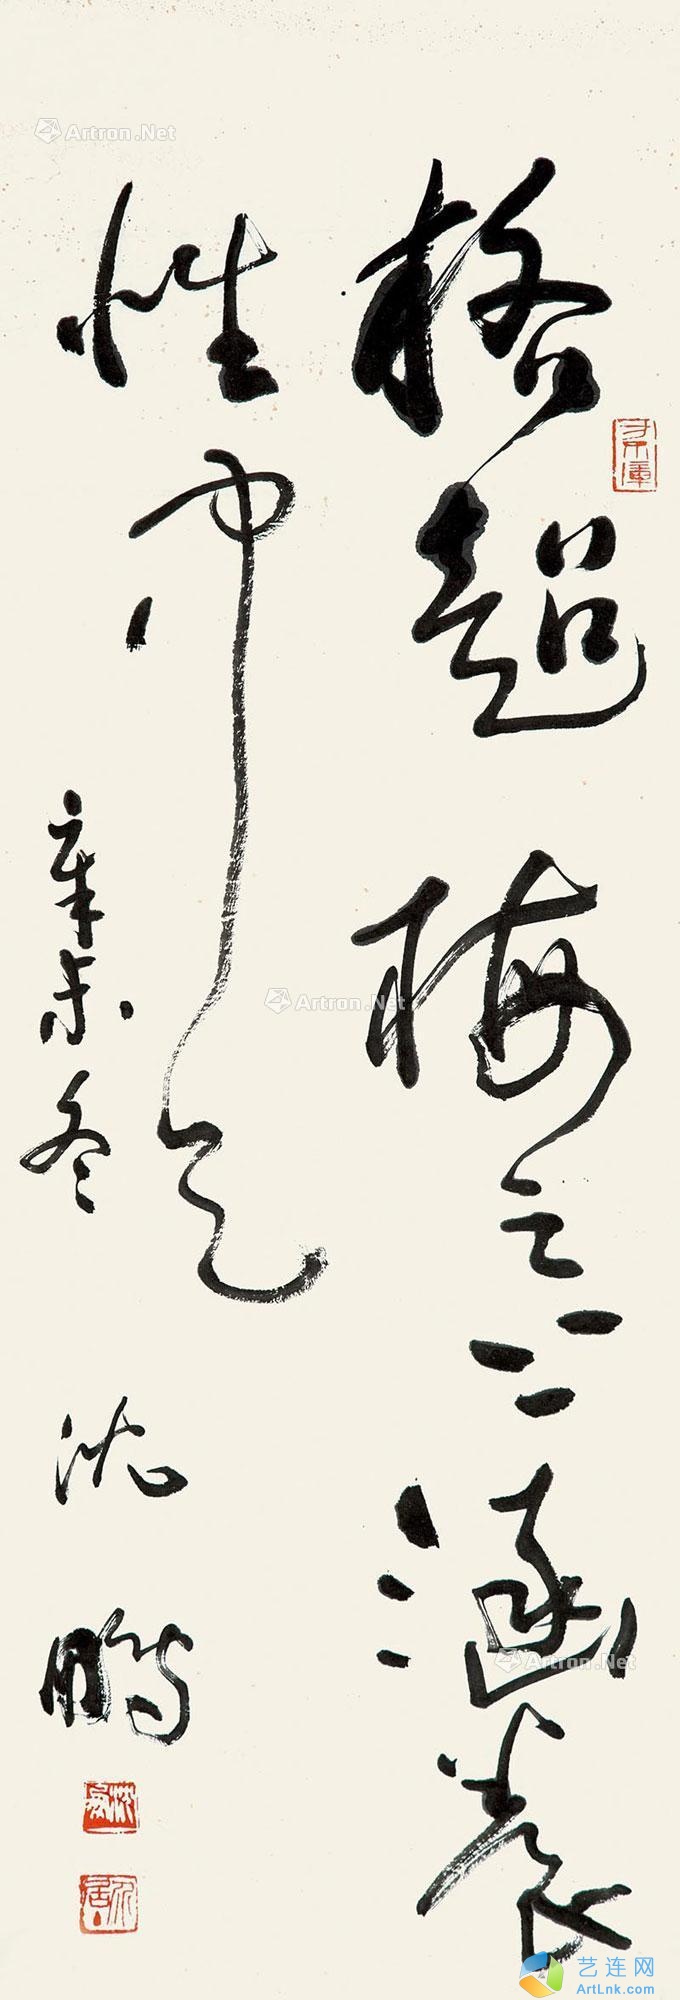 格超梅之上涵养
性中天
辛未冬 沈鹏
Artron.Net
Artron.Net
Artron.Net
艺连网
ArtLnk.com